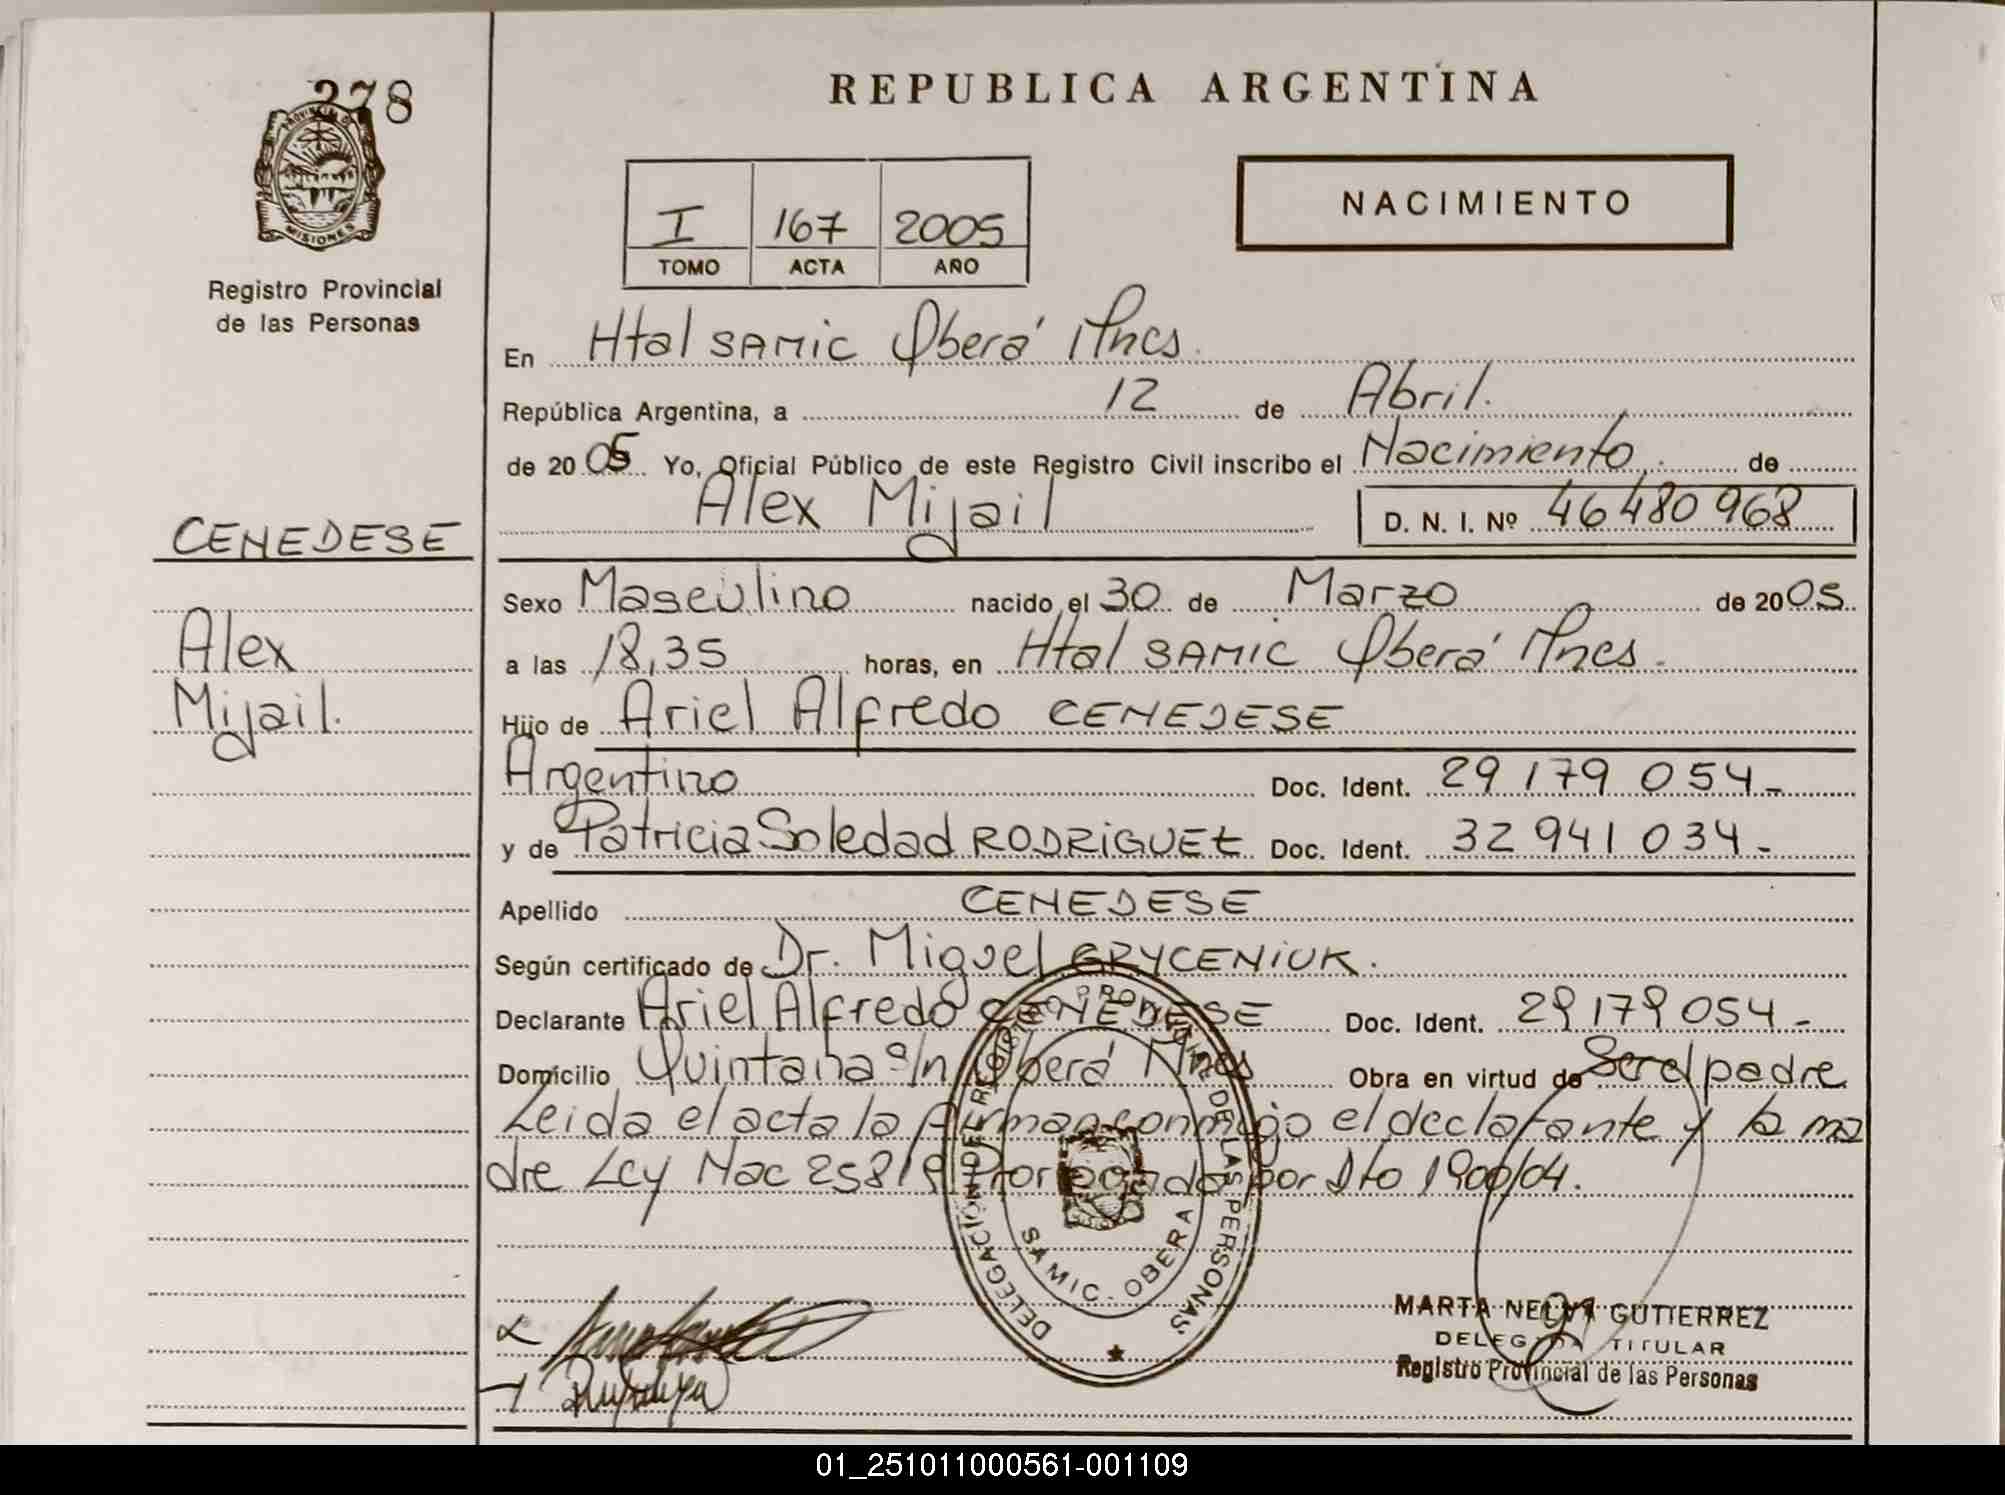 278
PROVINCIA DE
MISIONES
Registro Provincial
de las Personas
CENEDESE
Alex
Mijail.
REPUBLICA ARGENTINA
I 167 2005
TOMO ACTA AÑO
NACIMIENTO
En Htal SAMIC Oberá Mnes.
República Argentina, a 12 de Abril.
de 2005 Yo, Oficial Público de este Registro Civil inscribo el Nacimiento de
Alex Mijail D. N. I. Nº 46 480 968
Sexo Masculino nacido el 30 de Marzo de 2005
a las 18,35 horas, en Htal SAMIC Oberá Mnes.
Hijo de Ariel Alfredo CENEDESE
Argentino Doc. Ident. 29 179 054-
y de Patricia Soledad RODRiGUEZ Doc. Ident. 32 941 034-
Apellido CENEDESE
Según certificado de Dr. Miguel GRYCENiUK.
Declarante Ariel Alfredo CENEDESE Doc. Ident. 29 179 054-
Domicilio Quintana s/n Oberá Mnes Obra en virtud de Ser el padre
Leida el acta la firman conmigo el declarante y la ma
dre Ley Nac 25819 Prorrogada por Dto 1900/04.
DELEGACION DEL REGISTRO PROVINCIAL DE LAS PERSONAS
SAMIC - OBERA
MARTA NELVA GUTIERREZ
DELEGADA TITULAR
Registro Provincial de las Personas
01_251011000561-001109